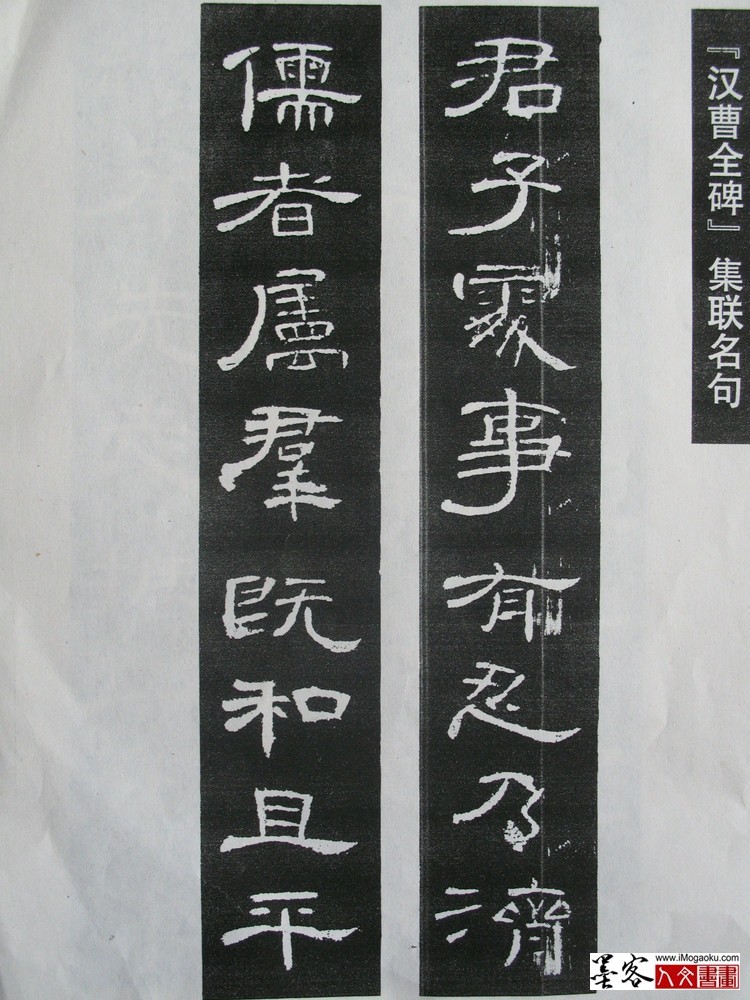 『汉曹全碑』集联名句
君子處事有忍乃濟
儒者慮羣既和且平
墨客
www.iMogaoku.com
人文書畫